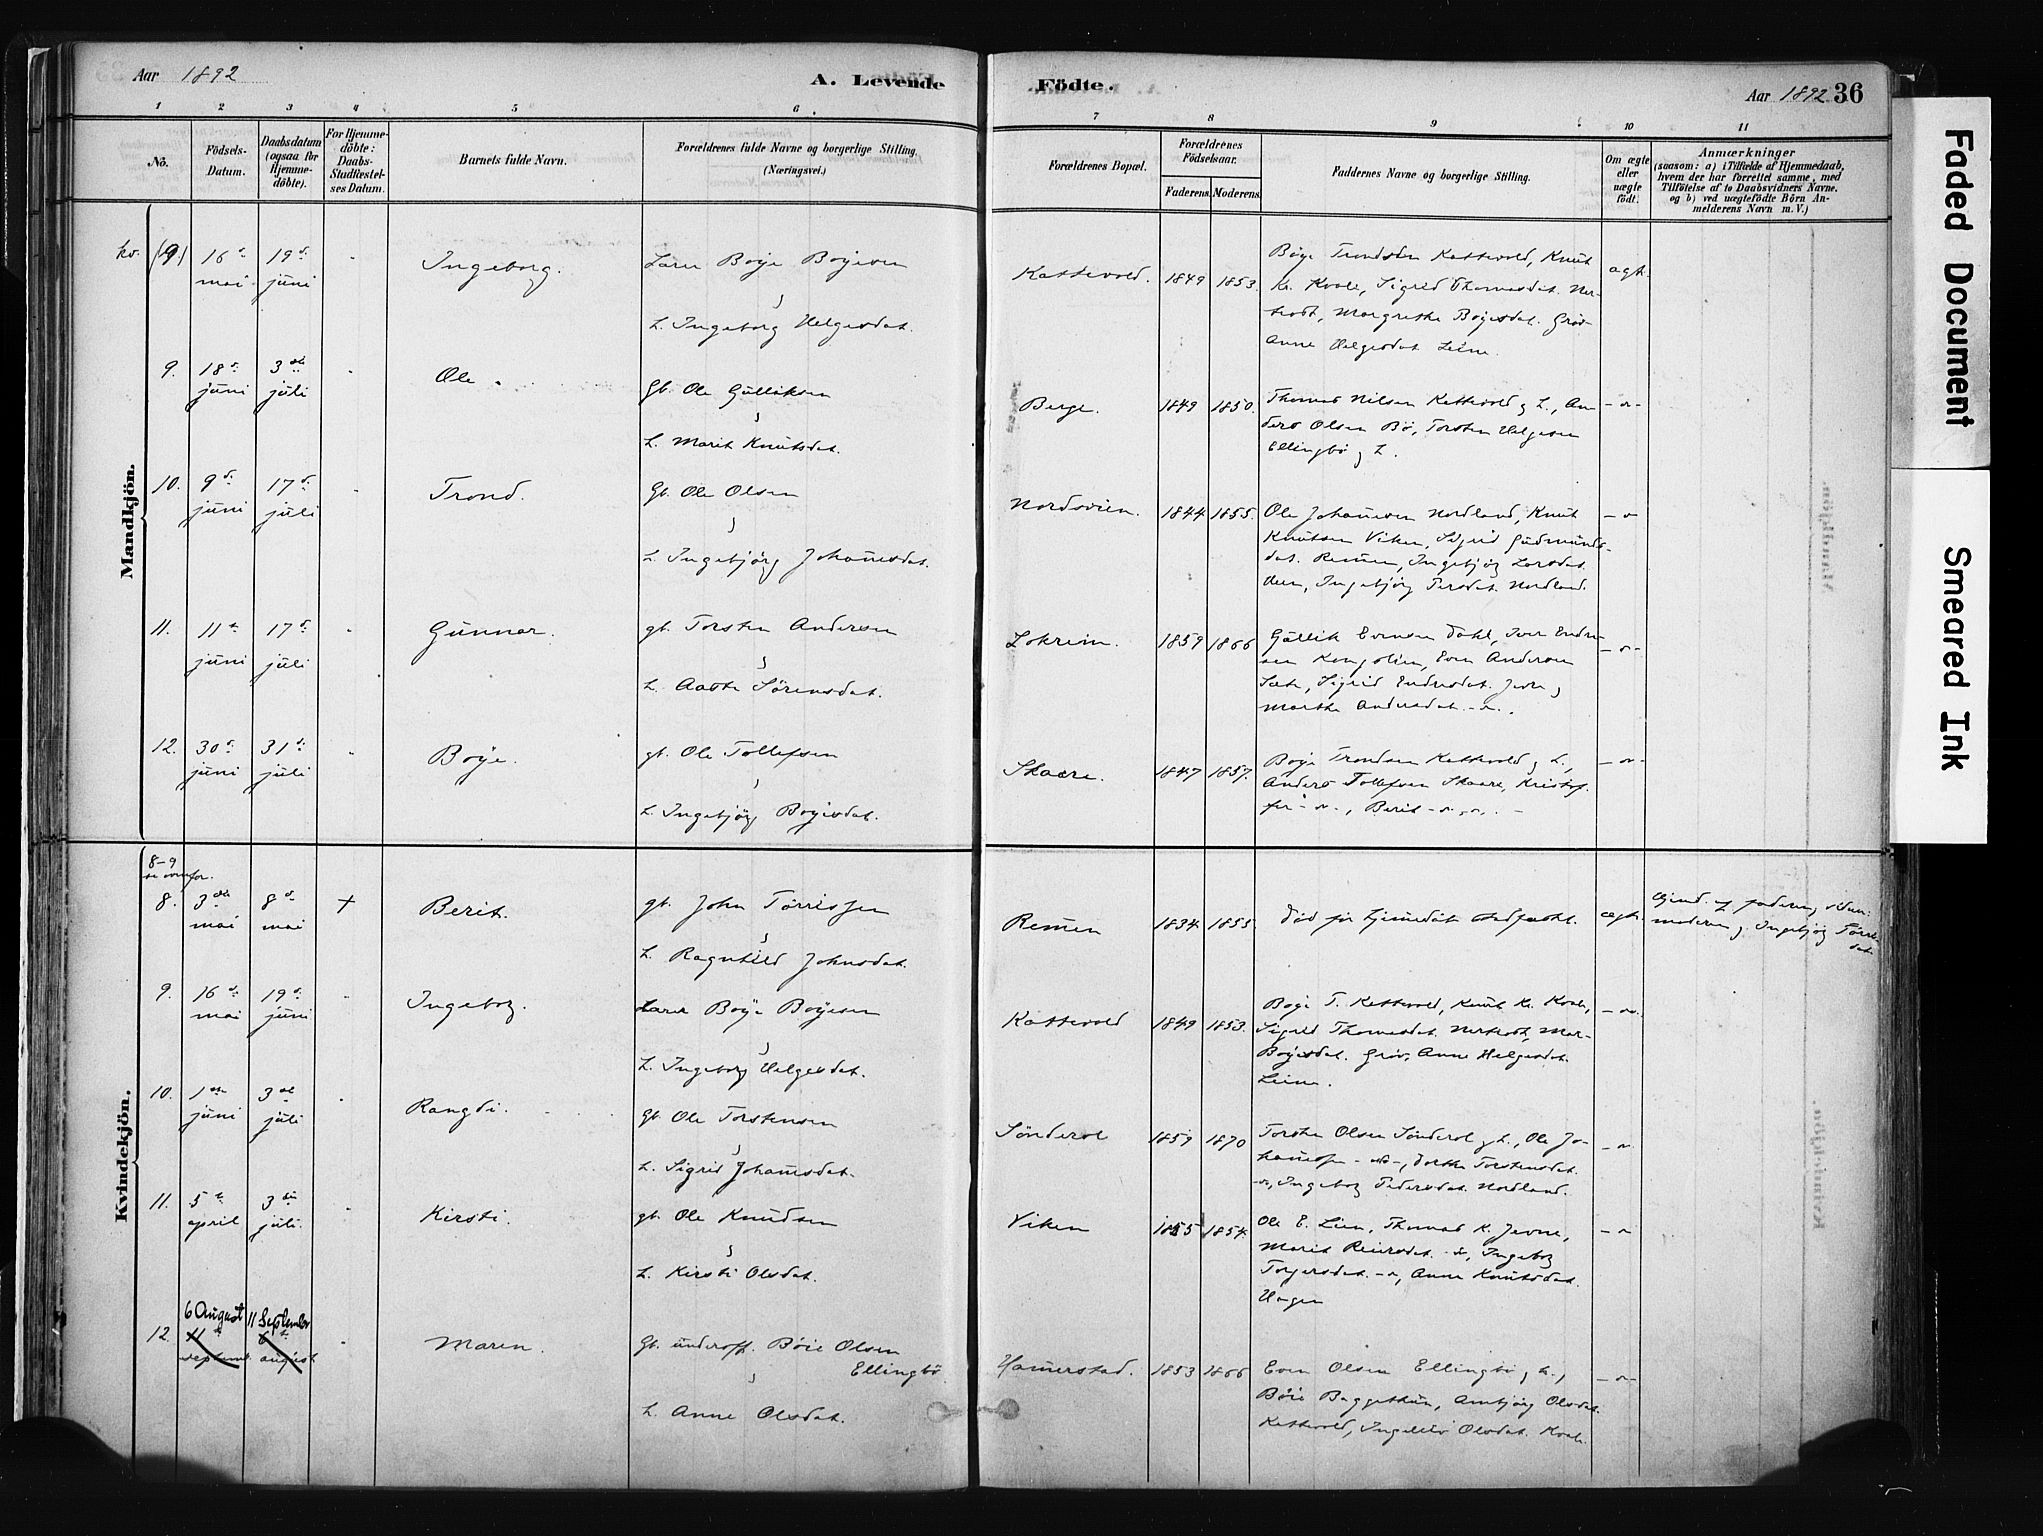 Aar 1892
A. Levende
Födte.
Aar 1892 36
1 2 3 4 5 6 7 8 9 10 11
No.
Födsels-Datum.
Daabsdatum (ogsaa for Hjemme-döbte).
For Hjemme-döbte: Daabs-Stadfæstel-ses Datum.
Barnets fulde Navn.
Forældrenes fulde Navne og borgerlige Stilling.
(Næringsvei.)
Forældrenes Bopæl.
Forældrenes Födselsaar.
Faderens. Moderens.
Faddernes Navne og borgerlige Stilling.
Om ægte eller uægte födt.
Anmærkninger
(saasom: a) i Tilfælde af Hjemmedaab,
hvem der har forrettet samme, med
Tilföielse af to Daabsvidners Navne.
og b) ved uægtefödte Börn An-
melderens Navn m. V.)
Mandkjön.
kv. (9) 16 mai 19 juni Ingeborg. Boye Boyesen
L. Ingeborg Helgesdat.
Kattevold. 1849 1853.
Böye Trondsen Kattevold, Knut
Kr. Kvale, Sigrid Thomasdat. Ner-
trodt, Margrethe Boyesdat. Gröv
Anne Helgesdat Leine.
ægte.
9. 18 juni 3 juli Ole
Gb. Ole Gulliksen
L. Marit Knutsdat.
Berge. 1849 1850.
Thomas Nilsen Kattevold g L., An-
ders Olsen Bö, Torsten Helgesen
Ellingbö g L.
10. 9 juni 17 juli Trond.
Gb. Ole Olsen
L. Ingebjörg Johannesdat.
Nordsvien. 1844 1855.
Ole Johannesen Nordland, Knut
Knutsen Viken, Sigrid Gudmunds-
dat. Remmen, Ingebjörg Larsdat.
Ingebjörg Persdat. Nordland.
11. 11 juni 17 juli Gunnar.
gb. Torsten Andersen
L. Aaste Sörensdat.
Lokreim. 1859 1866
Gullik Evensen Dahl, Iver Endre-
sen Kongslien, Even Andersen
Sæte, Sigrid Endresdat. Jevne,
Marthe Andersdat.
12. 30 juni 31 juli Boye.
gb. Ole Tollefsen
L. Ingebjörg Boyesdat.
Skaare. 1847 1857.
Boye Trondsen Kattevold g L.,
Anders Tollefsen Skaare, Kristof-
fer, Berit
Kvindekjön.
8-9
se ovenfor.
8. 3 mai 8 mai + Berit.
gb. John Törrissen
L. Ragnhild Johnsdat.
Remmen 1834 1855.
Död för hjemmedöb stadfæstet. ægte.
9. 16 mai 19 juni Ingeborg.
Boye Boyesen
L. Ingeborg Helgesdat.
Kattevold 1849 1853.
Boye T. Kattevold, Knut Kr. Kvale,
Sigrid Thomasdat. Nertrodt, Mar-
Boyesdat. Gröv, Anne Helgesdat.
Leine.
10. 1 juni 3 juli Rangdi.
gb. Ole Torstensen
L. Sigrid Johannesdat.
Sönderol 1859 1870
Torsten Olsen Sönderol g L., Ole Jo-
hannessen, Dorthe Torstensdat.
Ingeborg Pedersdat. Nordland.
11. 5 april 3 juli. Kirsti.
gb. Ole Knudsen
L. Kirsti Olsdat.
Viken 1855 1854.
Ole E. Lien, Thomas K. Jevne,
Marit Reiersdat., Ingeborg
Torgersdat., Anne Knutsdat.
Hagen
6 August 11 September
12. 11 septemb. 6 august Maren.
Gb. underoff. Böie Olsen
Ellingbö.
L. Anne Olsdat.
Hamerstad. 1853 1866
Even Olsen Ellingbö g h.,
Böie Baggethun, Ambjörg Olsdat.
Kattevold, Ingebör Olsdat. Kvale.
Faded Document
Smeared Ink